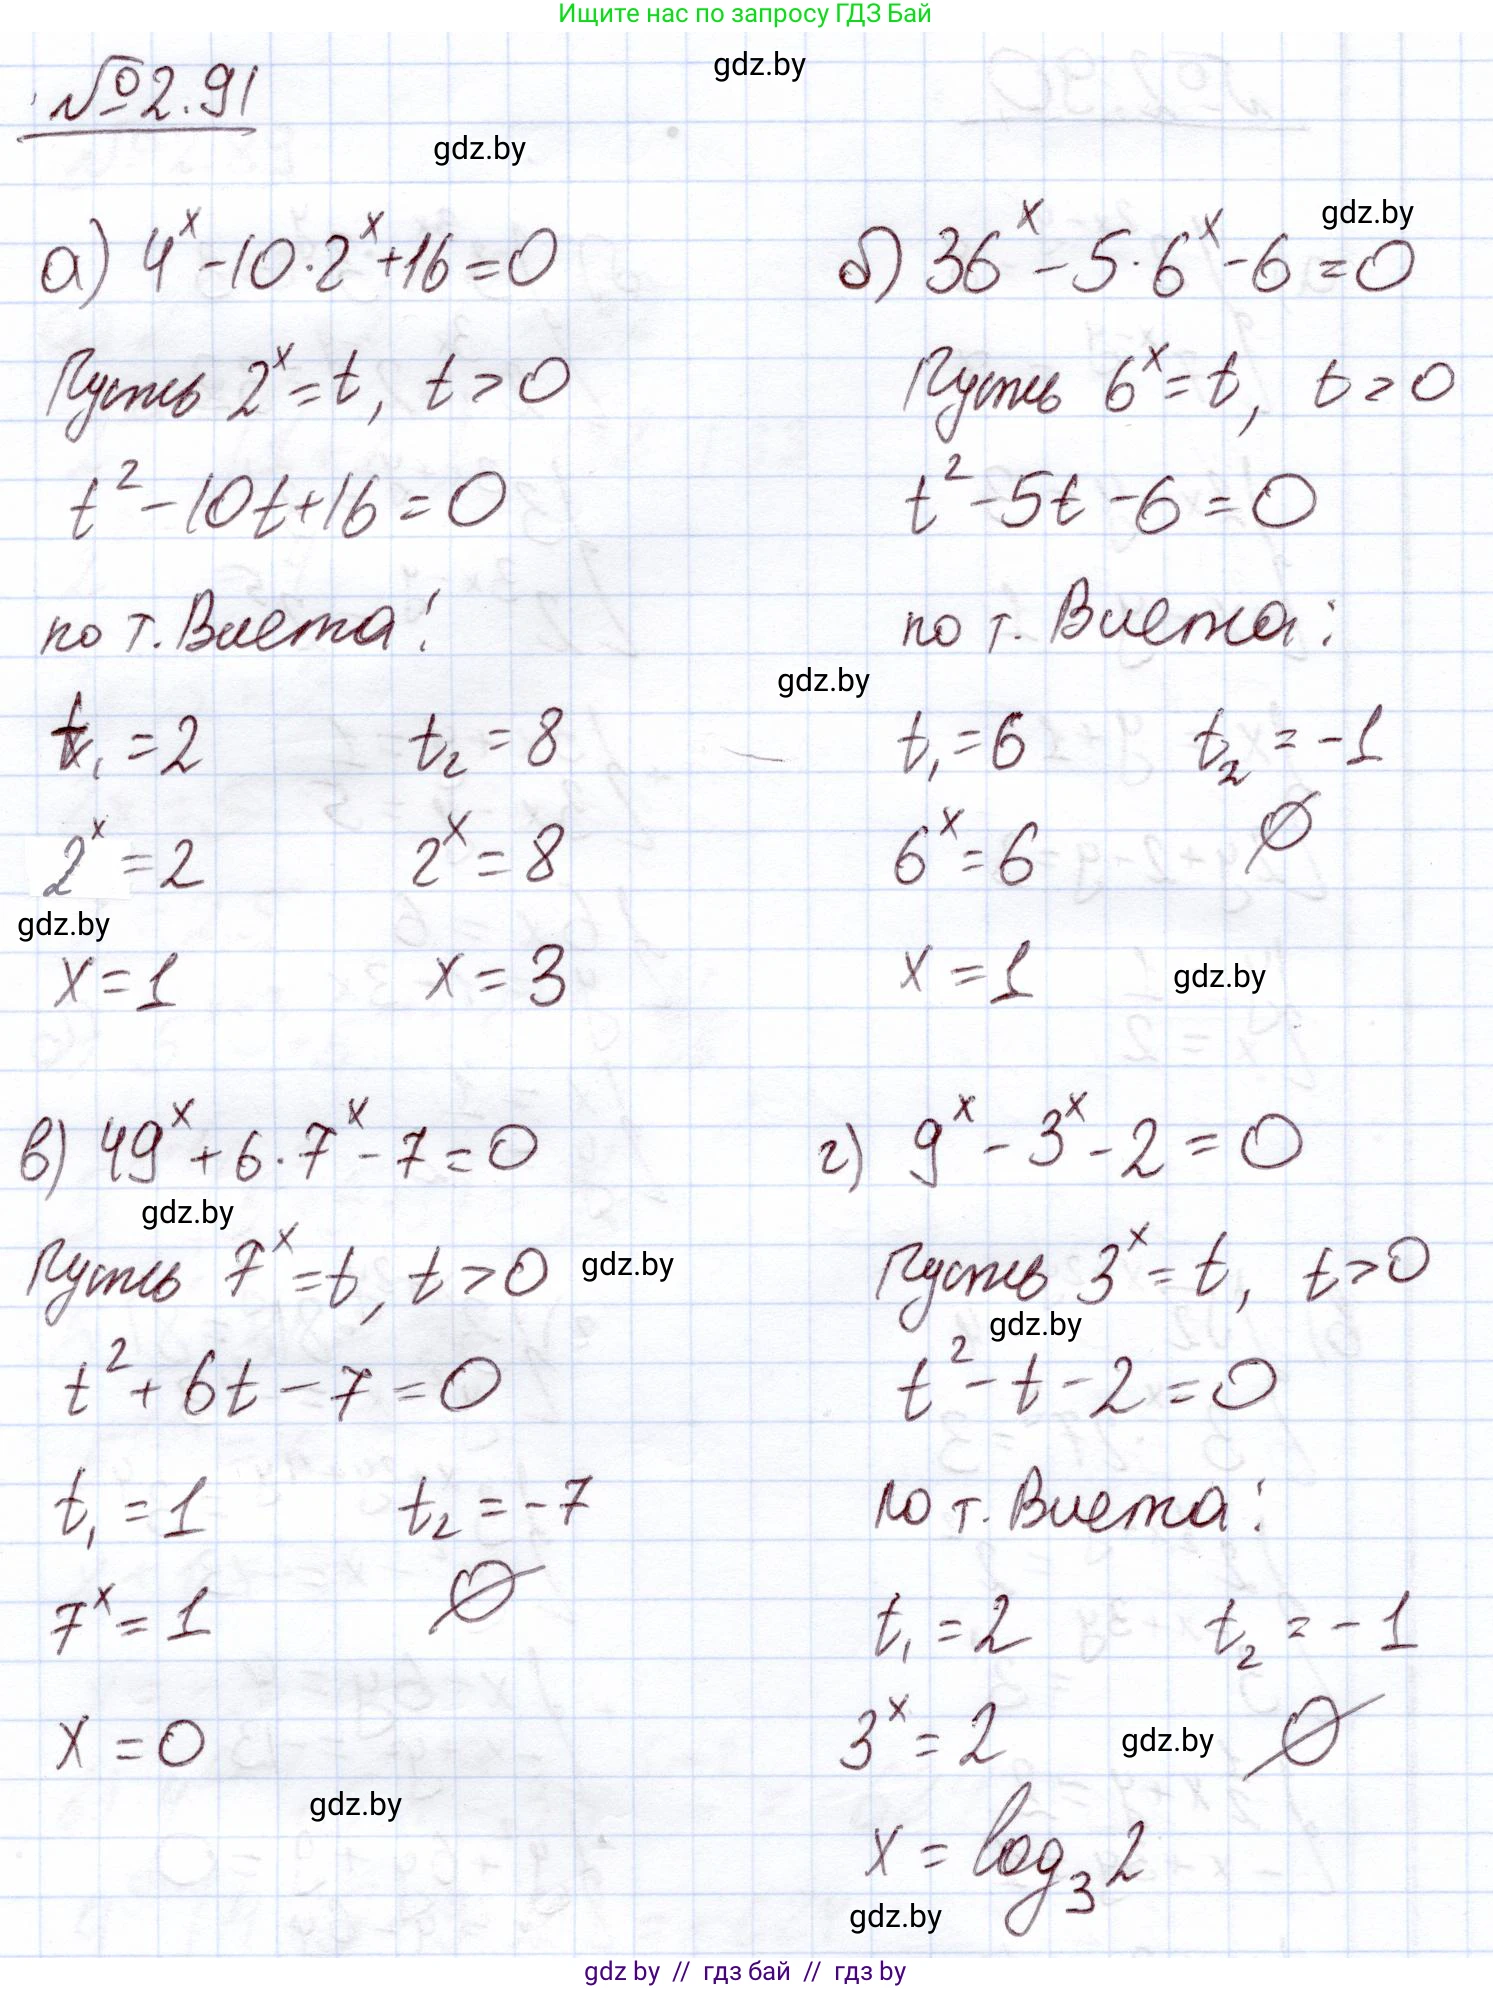 Ищите нас по запросу ГДЗ Бай
gdz.by
№2.91
gdz.by
gdz.by
а) 4ˣ-10·2ˣ+16=0
Пусть 2ˣ=t, t>0
t²-10t+16=0
по т. Виета:
t₁=2 t₂=8
2ˣ=2 2ˣ=8
gdz.by
x=1 x=3
б) 36ˣ-5·6ˣ-6=0
Пусть 6ˣ=t, t>0
t²-5t-6=0
по т. Виета:
gdz.by
t₁=6 t₂=-1
6ˣ=6 ∅
x=1
gdz.by
в) 49ˣ+6·7ˣ-7=0
gdz.by
Пусть 7ˣ=t, t>0
gdz.by
t²+6t-7=0
t₁=1 t₂=-7
7ˣ=1 ∅
x=0
gdz.by
г) 9ˣ-3ˣ-2=0
Пусть 3ˣ=t, t>0
gdz.by
t²-t-2=0
по т. Виета:
t₁=2 t₂=-1
3ˣ=2 ∅
gdz.by
x=log₃2
gdz.by
gdz by // гдз бай // гдз by